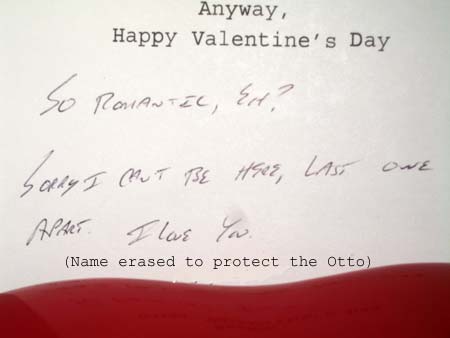 Anyway,
Happy Valentine's Day
SO ROMANTIC, EH?
SORRY I CAN'T BE HERE, LAST ONE
APART. I LOVE YOU.
(Name erased to protect the Otto)